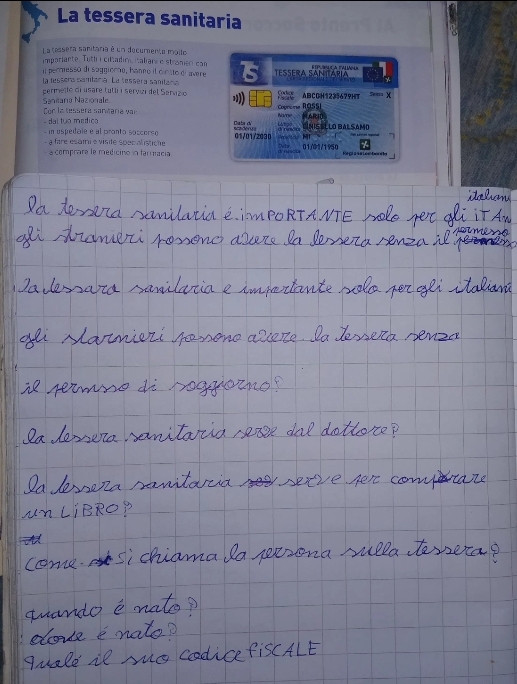 La tessera sanitaria
La tessera sanitaria è un documento molto
importante. Tutti i cittadini, italiani o stranieri con
il permesso di soggiorno, hanno il diritto di avere
la tessera sanitaria. La tessera sanitaria
permette di usare tutti i servizi del Servizio
Sanitario Nazionale.
Con la tessera sanitaria vai:
- dal tuo medico
- in ospedale e al pronto soccorso
- a fare esami e visite specialistiche
- a comprare le medicine in farmacia.
TS
REPUBBLICA ITALIANA
TESSERA SANITARIA
Codice Fiscale ABCDH1235679HT Sesso X
Cognome ROSSI
Nome MARIO
Luogo di nascita CINISELLO BALSAMO
Provincia MI
Data di nascita 01/01/1950
Data di scadenza 01/01/2030
Regione Lombardia
italiani
la tessera sanitaria é iMPORTANTE solo per gli
permesso
gli stranieri possono avere la tessera senza il
la tessara sanitaria e importante solo per gli italiani
gli starnieri possono avere la tessera senza
il permisso di soggiorno?
la tessera sanitaria serve dal dottore?
la tessera sanitaria serve per comprare
un LiBRO?
come si chiama la persona sulla tessera?
quando é nato?
dove é nato?
qualé il suo codice fiSCALE